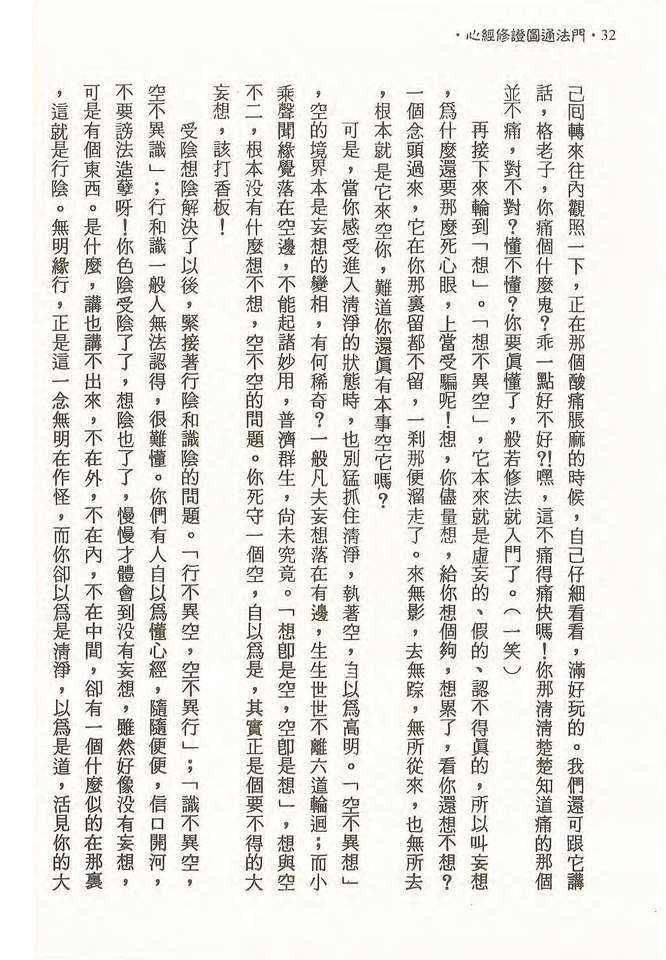 32・門法通圓證修經心・
己回轉來往內觀照一下，正在那個酸痛脹麻的時候，自己仔細看看，滿好玩的。我們還可跟它講
話，格老子，你痛個什麼鬼？乖一點好不好？！嘿，這不痛得痛快嗎！你那淸淸楚楚知道痛的那個
並不痛，對不對？懂不懂？你要眞懂了，般若修法就入門了。（一笑）
再接下來輪到「想」。「想不異空」，它本來就是虛妄的、假的、認不得眞的，所以叫妄想
，爲什麼還要那麼死心眼，上當受騙呢！想，你儘量想，給你想個夠，想累了，看你還想不想？
一個念頭過來，它在你那裏留都不留，一刹那便溜走了。來無影，去無踪，無所從來，也無所去
，根本就是它來空你，難道你還眞有本事空它嗎？
可是，當你感受進入淸淨的狀態時，也別猛抓住淸淨，執著空，自以爲高明。「空不異想」
，空的境界本是妄想的變相，有何稀奇？一般凡夫妄想落在有邊，生生世世不離六道輪迴；而小
乘聲聞緣覺落在空邊，不能起諸妙用，普濟群生，尙未究竟。「想卽是空，空卽是想」，想與空
不二，根本没有什麼想不想，空不空的問題。你死守一個空，自以爲是，其實正是個要不得的大
妄想，該打香板！
受陰想陰解決了以後，緊接著行陰和識陰的問題。「行不異空，空不異行」；「識不異空，
空不異識」；行和識一般人無法認得，很難懂。你們有人自以爲懂心經，隨隨便便，信口開河，
不要謗法造孽呀！你色陰受陰了了，想陰也了了，慢慢才體會到没有妄想，雖然好像没有妄想，
可是有個東西。是什麼，講也講不出來，不在外，不在內，不在中間，卻有一個什麼似的在那裏
，這就是行陰。無明緣行，正是這一念無明在作怪，而你卻以爲是淸淨，以爲是道，活見你的大